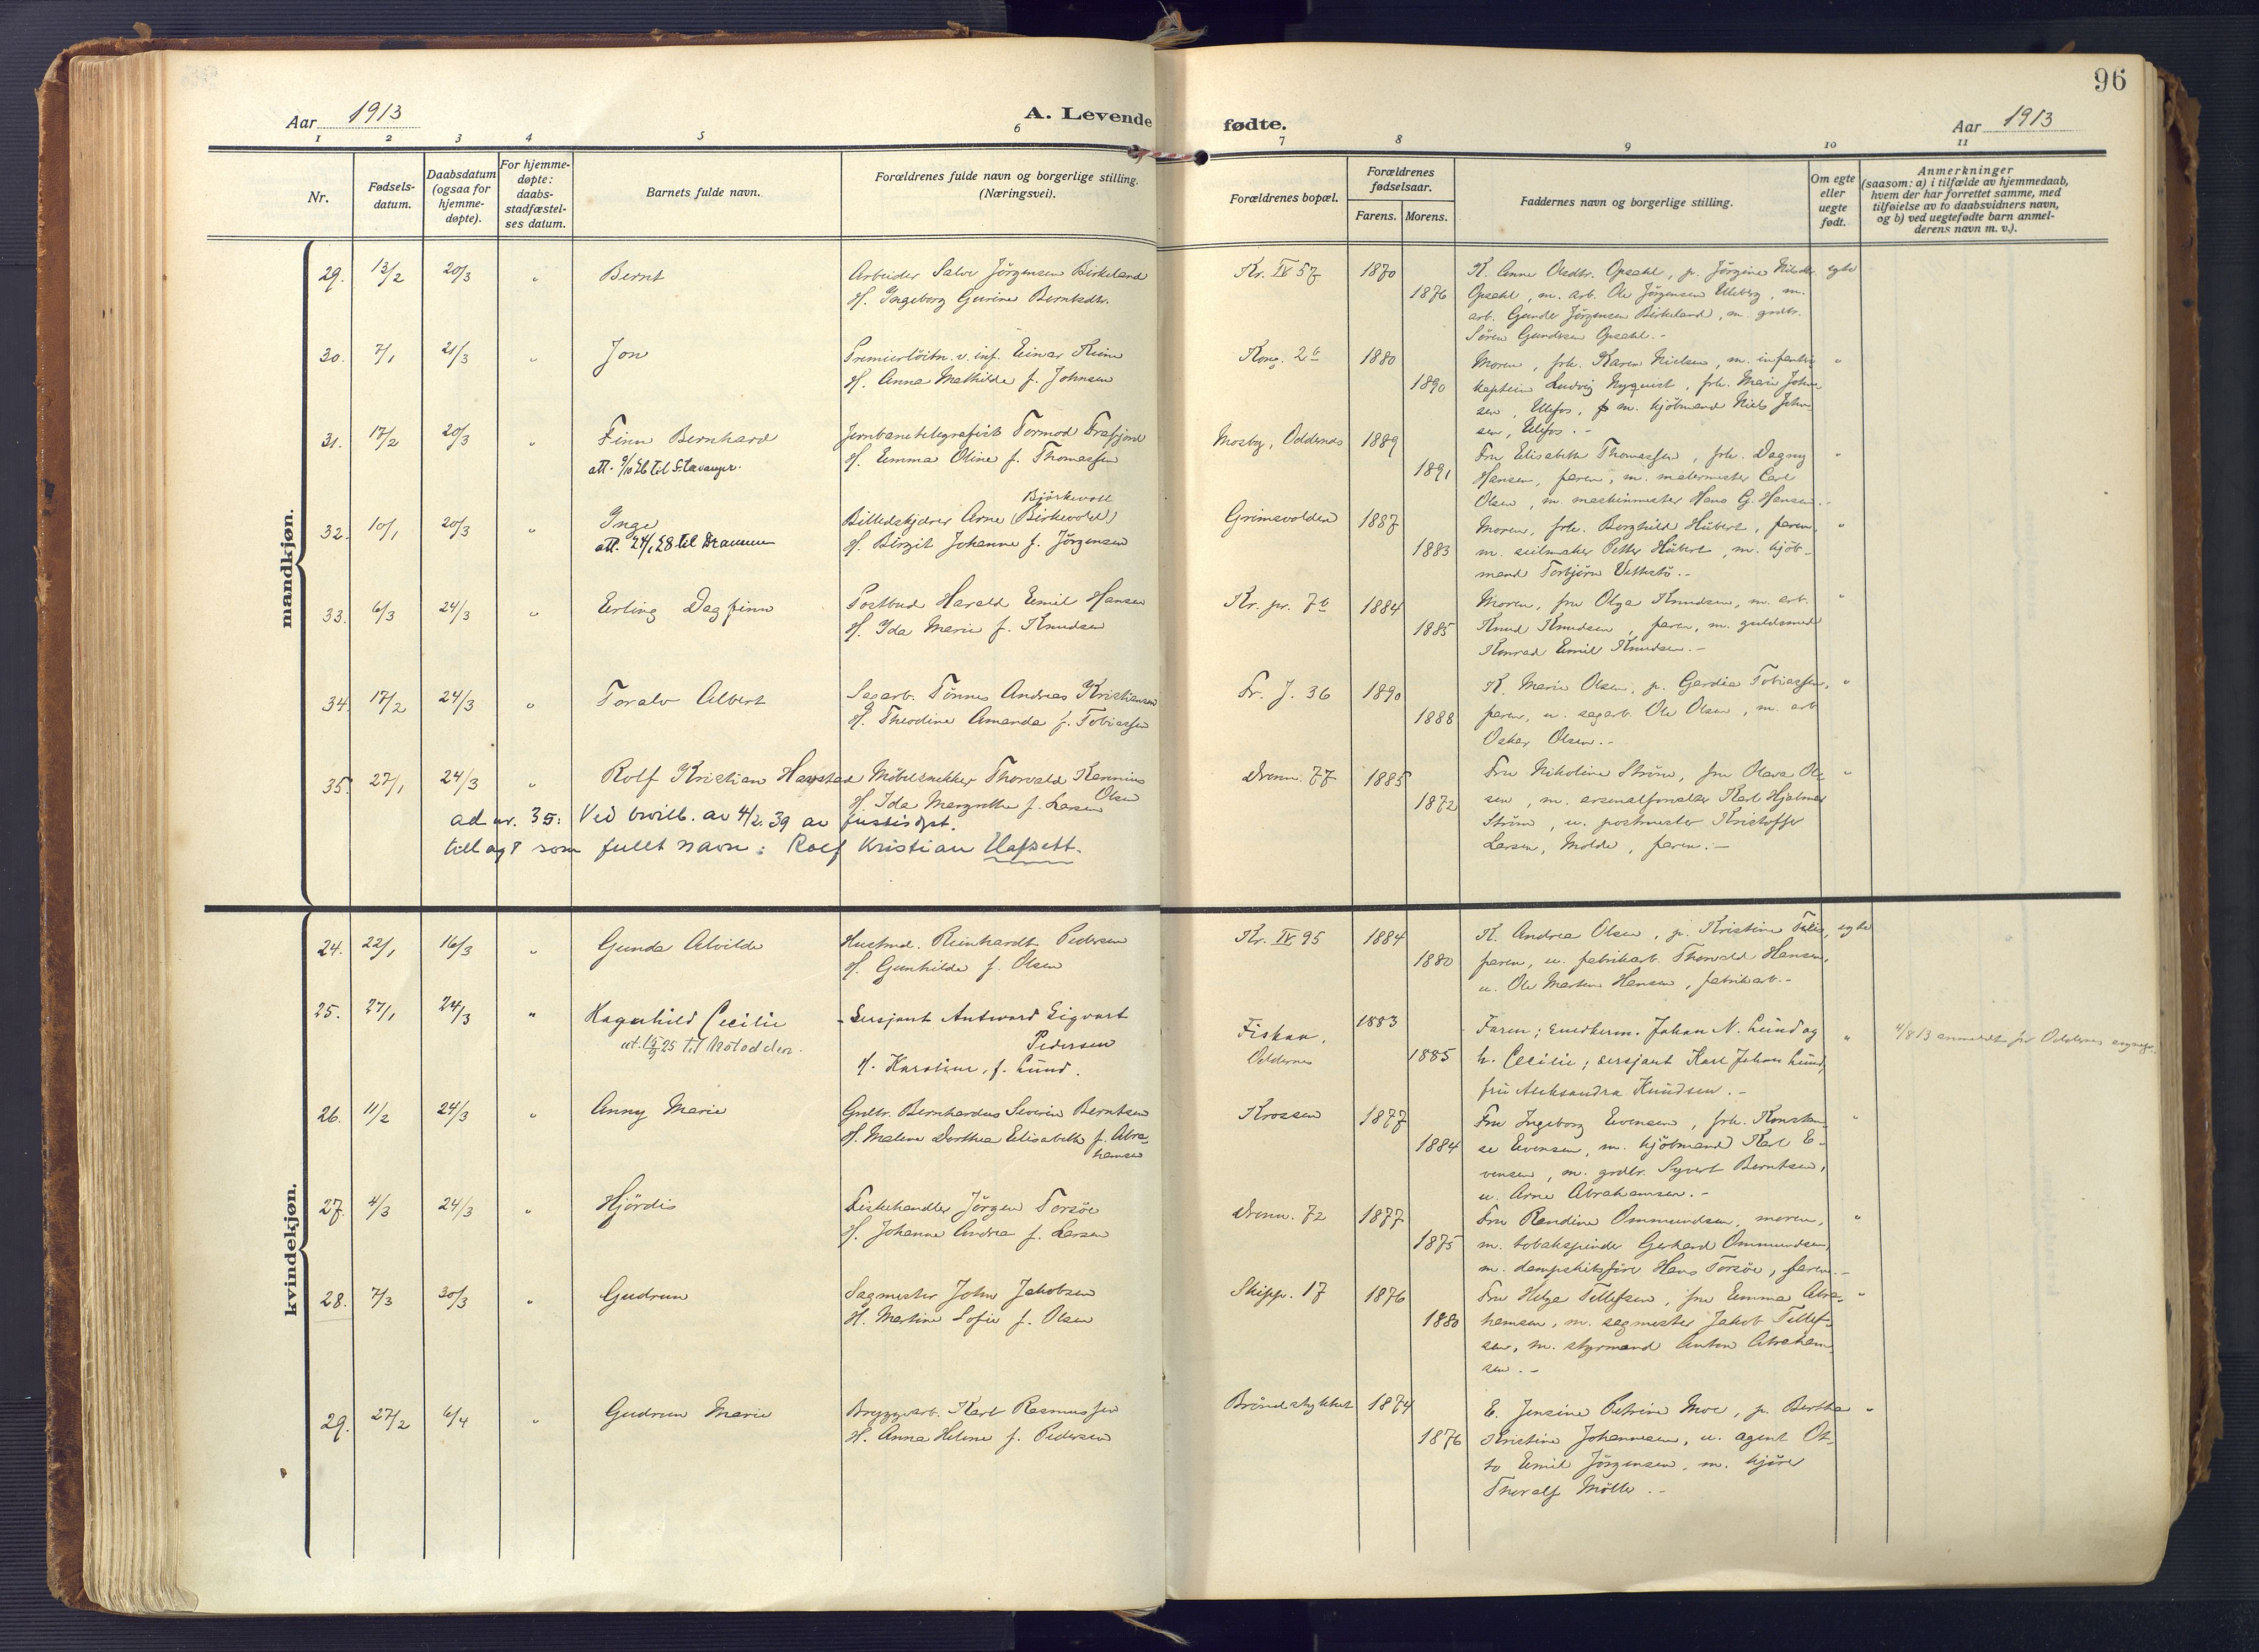 96
Aar 1913
A. Levende fødte.
Aar 1913
1 2 3 4 5 6 7 8 9 10 11
Nr.
Fødsels-
datum.
Daabsdatum
(ogsaa for
hjemme-
døpte).
For hjemme-
døpte:
daabs-
stadfæstel-
ses datum.
Barnets fulde navn.
Forældrenes fulde navn og borgerlige stilling.
(Næringsvei).
Forældrenes bopæl.
Forældrenes
fødselsaar.
Farens. Morens.
Faddernes navn og borgerlige stilling.
Om egte
eller
uegte
født.
Anmerkninger
(saasom: a) i tilfælde av hjemmedaab,
hvem der har forrettet samme, med
tilføielse av to daabsvidners navn,
og b) ved uegtefødte barn anmel-
derens navn m. v.).
mandkjøn.
29. 13/2 20/3 " Bernt
Arbeider Salve Jörgensen Birkeland
H. Ingeborg Gurine Berntsdtr.
Kr. IV 57 1870 1876
K. Anne Olsdtr. Opsahl, p. Jörgine Nilsdtr. egte
Opsahl, m. arb. Ole Jörgensen Ulleberg, m.
arb. Gunder Jörgensen Birkeland, m. grdbr.
Sören Gundersen Opsahl.-
30. 7/1 21/3 " Jon
Premierlöitn. v. inf. Einar
H. Anna Mathilde f. Johnsen
Kong. 2b 1880 1890
Moren, frk. Karen Nielsen, m. infanteri "
kaptein Ludvig Nyquist, frk. Marie John-
sen, Ulefos, m. kjöbmand Niels John-
sen, Ulefos.-
31. 17/2 20/3 " Finn Bernhard
att. til Stavanger.
Jernbanetelegrafist Tormod Frafjord
H. Emma Oline f. Thomassen
Mosby, Oddernes 1889 1891
Fru Elisabeth Thomassen, frk. Dagny "
Hansen, faren, m. malermester Carl
Olsen, m. maskinmester Hans G. Hansen.-
32. 10/1 20/3 " Inge
att. 24/1 28 til Drammen
Björkevoll
Billedskjærer Arne (Birkevold)
H. Birgit Johanne f. Jörgensen
Grimsvolden 1887 1883
Moren, frk. Borghild Hübert, faren, "
m. seilmaker Petter Hübert, m. kjöb-
mand Torbjörn Vetkstö.-
33. 6/3 24/3 " Erling Dagfinn
Postbud Harald Emil Hansen
H. Ida Marie f. Knudsen
Kr. pr. 7b 1884 1885
Moren, fru Olga Knudsen, m. arb. "
Knud Knudsen, faren, m. guldsmed
Konrad Emil Knudsen.-
34. 17/2 24/3 " Toralv Albert
Sagarb. Tönnes Andreas Kristiansen
H. Theodine Amanda f. Tobiassen
Fr. J. 36 1890 1888
K. Marie Olsen, p. Gerdia Tobiassen, "
faren, u. sagarb. Ole Olsen, m. arb
Oskar Olsen.-
35. 27/1 24/3 " Rolf Kristian Havstad
Möbelsnekker Thorvald Karenius
Olsen
H. Ida Margrethe f. Larsen
Dronn. 77 1885 1872
Fru Nikoline Ström, fru Olava Ol- "
sen, m. arsenalforvalter Karl Hjalmar
Ström, u. postmester Kristoffer
Larsen, Molde, faren.-
ad nr. 35: Ved bevill. av 4/2.39 av justisdpt.
tillagt som fullt navn: Rolf Kristian Hafsett.
kvindekjøn.
24. 22/1 16/3 " Gunda Alvilde
Hustml. Reinhardt Pedersen
H. Gunhilde f. Olsen
Kr. IV 95 1884 1880
K. Andrea Olsen, p. Kristine egte
faren, u. fabrikarb. Thorvald Hansen,
u. Ole Martin Hansen, fabrikarb.-
25. 27/1 24/3 " Ragnhild Cecilie
ut. 25 til Notodden.
Sersjant Antword Sigvart
Pedersen
H. Karoline, f. Lund.
Fiskaa,
Oddernes 1883 1885
Faren; snedkerm. Johan N. Lund og "
h. Cecilie; sersjant Karl Johan Lund,
fru Aleksandra Knudsen.-
4/8 13 anmeldt for Oddernes sognepr.
26. 11/2 24/3 " Anny Marie
Grdbr. Bernhardus Severin Berntsen
H. Malene Dorthea Elisabeth f. Abra-
hamsen
Krossen 1877 1884
Fru Ingeborg Evensen, frk. Konstan- "
se Evensen, m. kjöbmand Karl E-
vensen, m. grdbr. Syvert Berntsen,
u. Arne Abrahamsen.-
27. 4/3 24/3 " Hjördis
Fiskehandler Jörgen Torsöe
H. Johanne Andrea f. Larsen
Dronn. 72 1877 1875
Fru Randine Ommundsen, moren, "
m. tobakspinder Gerhard Ommundsen,
m. dampskibsförer Hans Torsöe, faren.-
28. 7/3 30/3 " Gudrun
Sagmester John Jakobsen
H. Martine Sofie f. Olsen
Skipp. 17 1876 1880
Fru Helga Tellefsen, fru Emma Abra- "
hamsen, m. sagmester Jakob Tellef-
sen, m. styrmand Anton Abraham-
sen.-
29. 27/2 6/4 " Gudrun Marie
Bryggearb. Karl Rasmussen
H. Anna Helene f. Pedersen
Bröndstykket 1874 1876
E. Jensine Petrine Moe, p. Bertha "
Kristine Johannesen, u. agent Ot-
to Emil Jörgensen, m. kjörer
Thoralf Möller.-